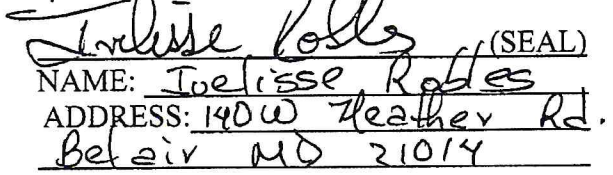 Ivelisse Robles (SEAL)
NAME: Ivelisse Robles
ADDRESS: 140 W Heather Rd.
Belair MD 21014